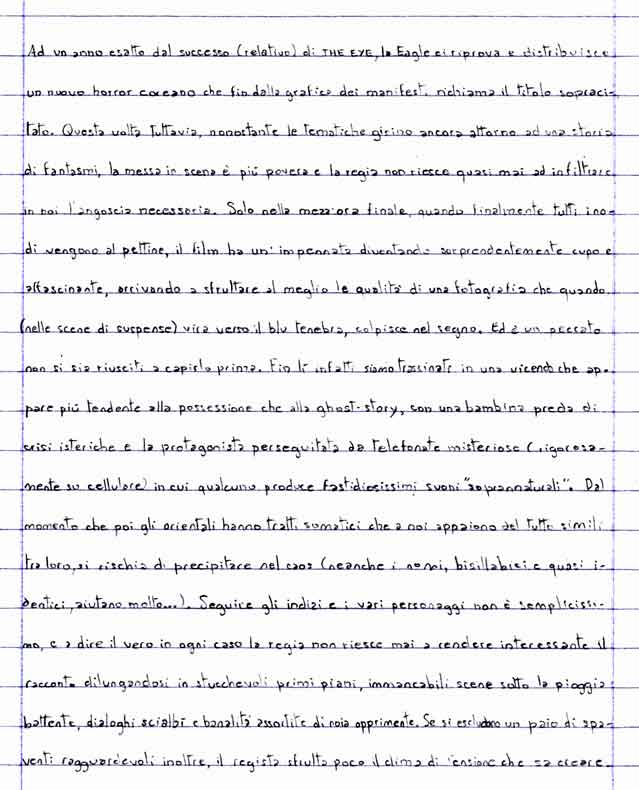 Ad un anno esatto dal successo (relativo) di THE EYE, la Eagle ci riprova e distribuisce
un nuovo horror coreano che fin dalla grafica dei manifesti richiama il titolo sopraci-
tato. Questa volta tuttavia, nonostante le tematiche girino ancora attorno ad una storia
di fantasmi, la messa in scena è più povera e la regia non riesce quasi mai ad infiltrare
in noi l'angoscia necessaria. Solo nella mezz'ora finale, quando finalmente tutti i no-
di vengono al pettine, il film ha un'impennata diventando sorprendentemente cupo e
affascinante, arrivando a sfruttare al meglio le qualità di una fotografia che quando
(nelle scene di suspense) vira verso il blu tenebra, colpisce nel segno. Ed è un peccato
non si sia riusciti a capirlo prima. Fin lì infatti siamo trascinati in una vicenda che ap-
pare più tendente alla possessione che alla ghost-story, con una bambina preda di
crisi isteriche e la protagonista perseguitata da telefonate misteriose (rigorosa-
mente su cellulare) in cui qualcuno produce fastidiosissimi suoni "soprannaturali". Dal
momento che poi gli orientali hanno tratti somatici che a noi appaiono del tutto simili
tra loro, si rischia di precipitare nel caos (neanche i nomi, bisillabici e quasi i-
dentici, aiutano molto...). Seguire gli indizi e i vari personaggi non è semplicissi-
mo, e a dire il vero in ogni caso la regia non riesce mai a rendere interessante il
racconto dilungandosi in stucchevoli primi piani, immancabili scene sotto la pioggia
battente, dialoghi scialbi e banalità assortite di noia opprimente. Se si escludono un paio di spa-
venti ragguardevoli inoltre, il regista sfrutta poco il clima di tensione che sa creare.